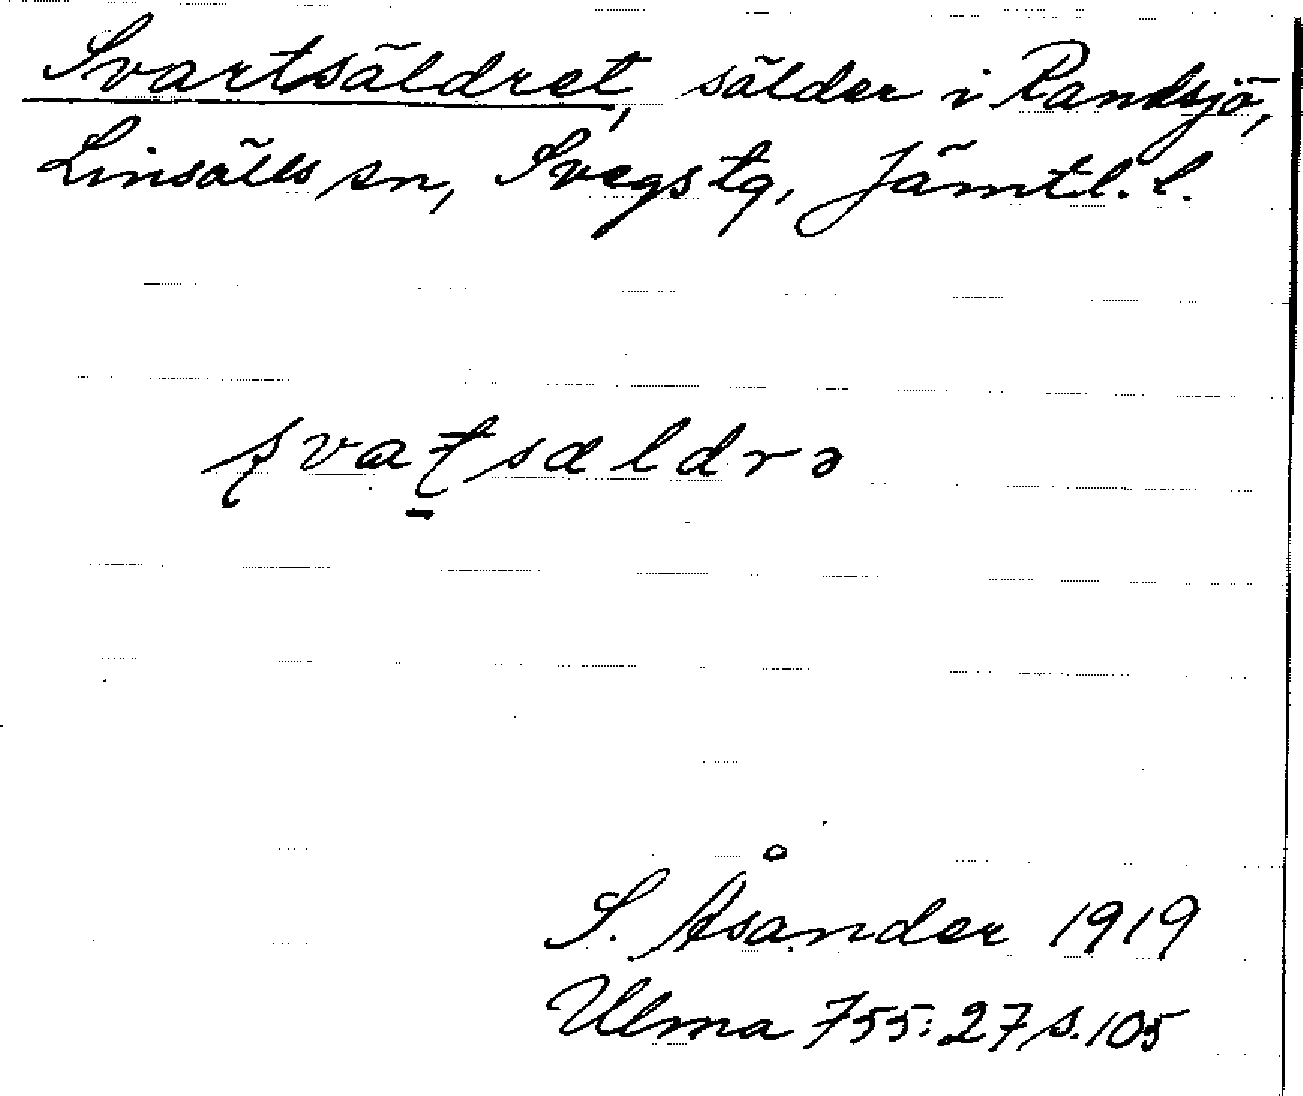 Svartsäldret, sälder i Randsjö,
Linsälls sn, Svegs tg, Jämtl. l.
ʂvaʈsældrə
S. Åsander 1919
Ulma 755:27 s. 105